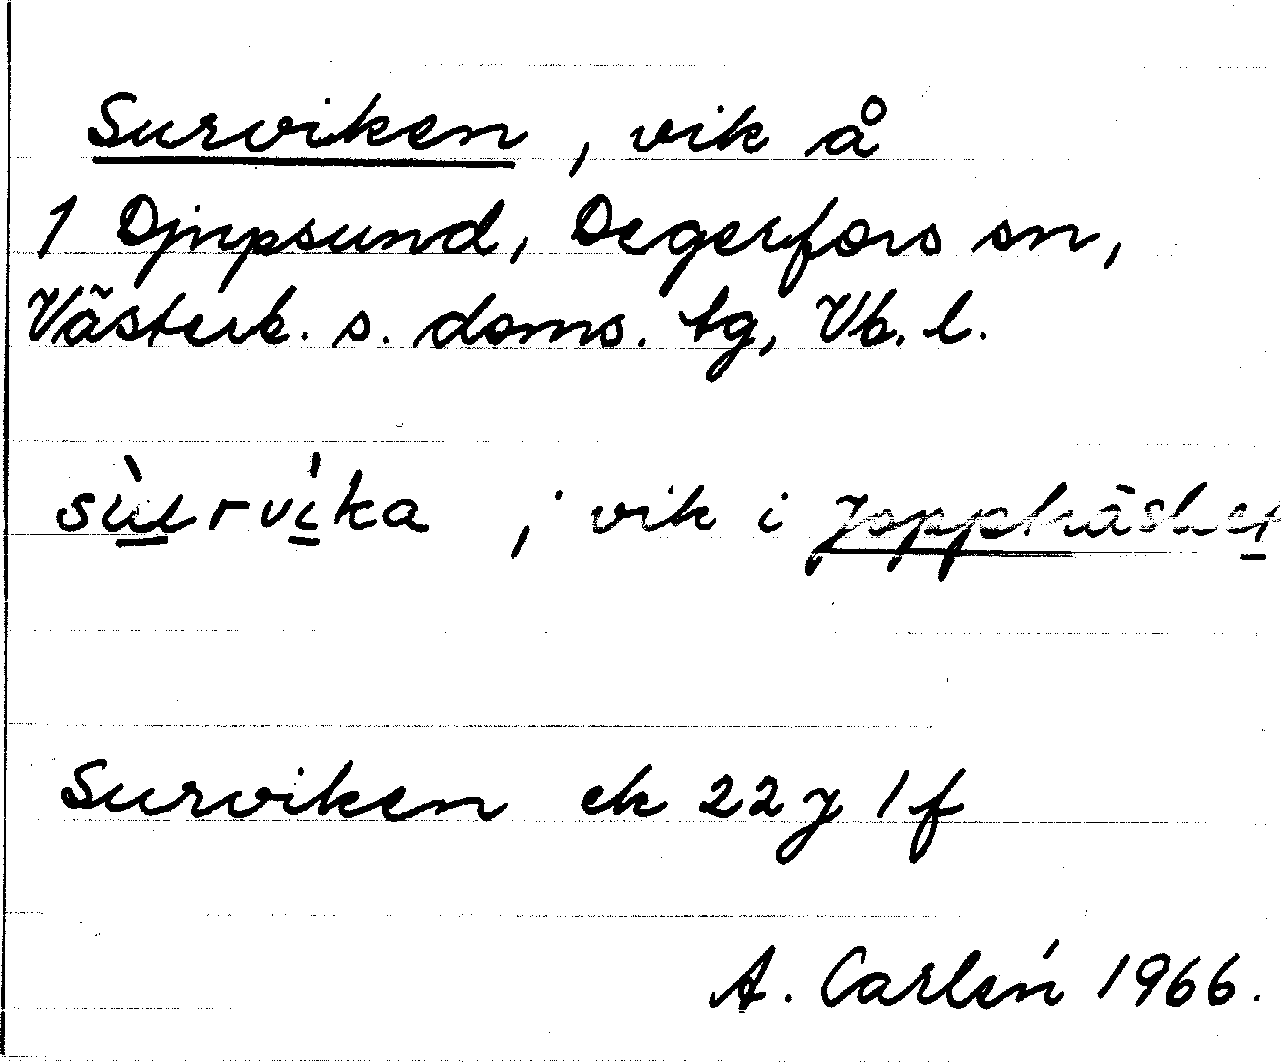 Surviken, vik å
1 Djupsund, Degerfors sn,
Västerb. s. doms. tg, Vb. l.
sùrvíka ; vik i
Surviken ek 22 J 1 f
A. Carlén 1966.